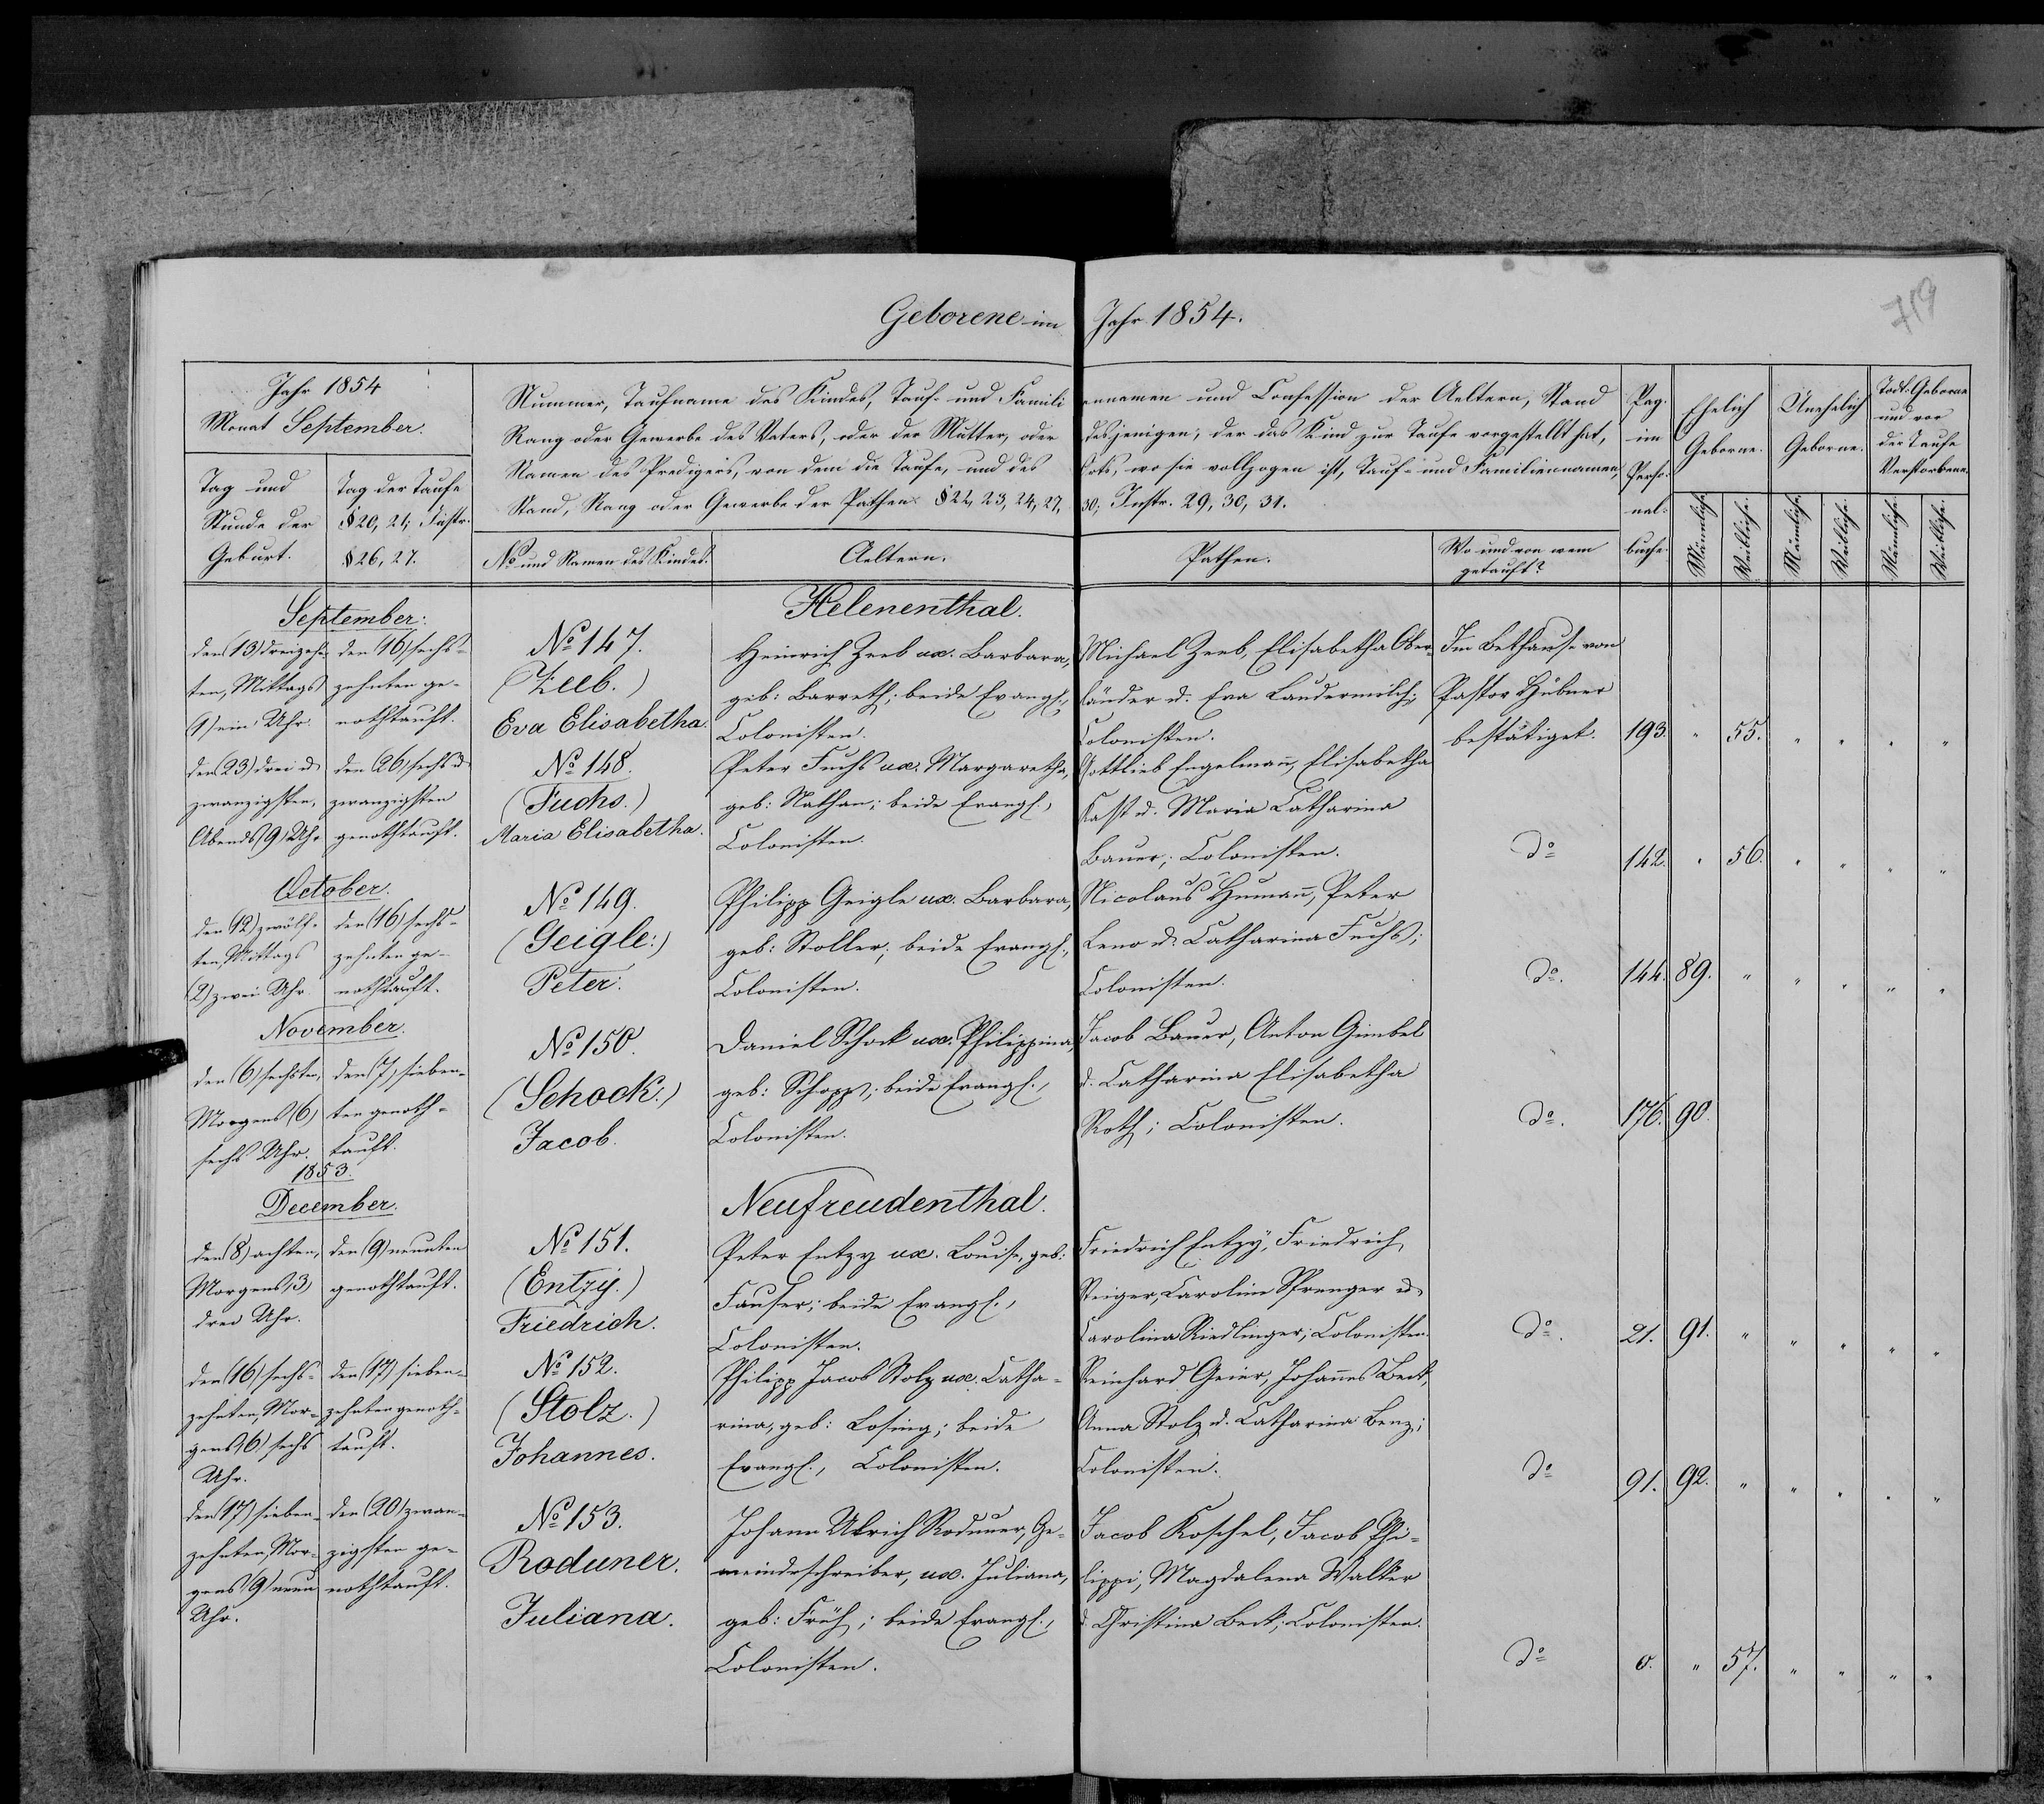 Geborene im Jahr 1854.
719
Jahr 1854
Monat September.
Tag und
Stunde der
Geburt.
Tag der Taufe
§ 20, 21; Instr.
§ 26, 27.
Nummer, Taufname des Kindes, Tauf- und Familiennamen und Confession der Aeltern, Stand
Rang oder Gewerbe des Vaters, oder der Mutter, oder desjenigen, der das Kind zur Taufe vorgestellt hat,
Namen des Predigers, von dem die Taufe, und des Orts, wo sie vollzogen ist, Tauf- und Familiennamen,
Stand, Rang oder Gewerbe der Pathen § 22, 23, 24, 27, 30; Instr. 29, 30, 31.
No und Namen des Kindes.
Aeltern.
Pathen.
Wo und von wem
getauft?
Pag.
im
Perso-
nal-
buche
Ehelich
Geborne.
Unehelich
Geborne.
Todt-Geborne
und vor
der Taufe
Verstorbene.
Männliche.
Weibliche.
Männliche.
Weibliche.
Männliche.
Weibliche.
Helenenthal.
September.
den (13) dreizehn-
ten, Mittags
(1) ein Uhr.
den (16) sechs-
zehnten ge-
nothtauft.
No 147.
(Zeeb.)
Eva Elisabetha.
Heinrich Zeeb ux. Barbara,
geb: Barreth; beide Evangl.,
Colonisten.
Michael Zeeb, Elisabetha Ober-
länder u. Eva Laudermilch;
Colonisten.
Im Bethause von
Pastor Hübner
bestätiget.
193. " 55. " " " "
den (23) drei u.
zwanzigsten,
Abends (9) Uhr
den (26) sechs u.
zwanzigsten
genothtauft.
No 148.
(Fuchs.)
Maria Elisabetha.
Peter Fuchs ux. Margaretha,
geb: Nathan; beide Evangl.,
Colonisten.
Gottlieb Engelmann, Elisabetha
Kast u. Maria Catharina
Bauer; Colonisten.
do
142. " 56. " " " "
October.
den (12) zwölf-
ten, Mittags
(2) zwei Uhr.
den (16) sechs-
zehnten ge-
nothtauft.
No 149.
(Geigle:)
Peter.
Philipp Geigle ux. Barbara,
geb: Stoller; beide Evangl.,
Colonisten.
Nicolaus Humann, Peter
Leno u. Catharina Fuchs;
Colonisten.
do.
144. 89. " " " " "
November.
den (6) sechsten,
Morgens (6)
sechs Uhr.
den (7) sieben-
ten genoth-
tauft.
No 150.
(Schock.)
Jacob.
Daniel Schock ux. Philippina,
geb: Schopp; beide Evangl.,
Colonisten.
Jacob Bauer, Anton Gimbel
u. Catharina Elisabetha
Roth; Colonisten.
do.
176. 90.
1853.
December.
Neufreudenthal.
den (8) achten,
Morgens (3)
drei Uhr.
den (9) neunten
genothtauft.
No 151.
(Entzy.)
Friedrich.
Peter Entzy ux. Louise, geb:
Fauser; beide Evangl.,
Colonisten.
Friedrich Entzy, Friedrich
Steiger, Carolina Sprenger u.
Carolina Riedlinger; Colonisten.
do.
21. 91. " " " " "
den (16) sechs-
zehnten, Mor-
gens (6) sechs
Uhr.
den (17) sieben-
zehnten genoth-
tauft.
No 152.
(Stolz.)
Johannes.
Philipp Jacob Stolz ux. Catha-
rina, geb: Losing; beide
Evangl., Colonisten.
Reinhard Geier, Johannes Beck,
Anna Stolz u. Catharina Benz;
Colonisten.
do
91. 92. " " " " "
den (17) sieben-
zehnten, Mor-
gens (9) neun
Uhr.
den (20) zwan-
zigsten ge-
nothtauft.
No 153.
Roduner.
Juliana.
Johann Ulrich Roduner, Ge-
meindeschreiber, ux. Juliana,
geb: Früh; beide Evangl.,
Colonisten.
Jacob Koschel, Jacob Phi-
lippi, Magdalena Walker
u. Christina Beck; Colonisten.
do
0. " 57. " " " "